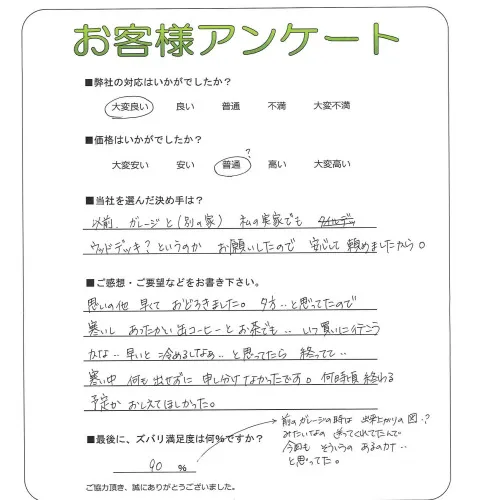 お客様アンケート
■弊社の対応はいかがでしたか?
大変良い 良い 普通 不満 大変不満
■価格はいかがでしたか?
大変安い 安い 普通? 高い 大変高い
■当社を選んだ決め手は?
以前、ガレージと(別の家) 私の実家でも
ウッドデッキ?というのか お願いしたので 安心して 頼めましたから。
■ご感想・ご要望などをお書き下さい。
思いの他 早くて おどろきました。夕方..と思ってたので
寒いし あったかい缶コーヒーとお茶でも.. いつ買いに行こう
かな.. 早いと 冷めるしなぁ.. と思ってたら 終ってて..
寒い中 何も出せずに 申し分けなかったです。何時頃 終わる
予定か おしえてほしかった。
■最後に、ズバリ満足度は何%ですか?
90 %
前のガレージの時は 出来上がりの図.?
みたいなの 送ってくれてたんで
今回も そういうの あるのかナ..
と思ってた。
ご協力頂き、誠にありがとうございました。